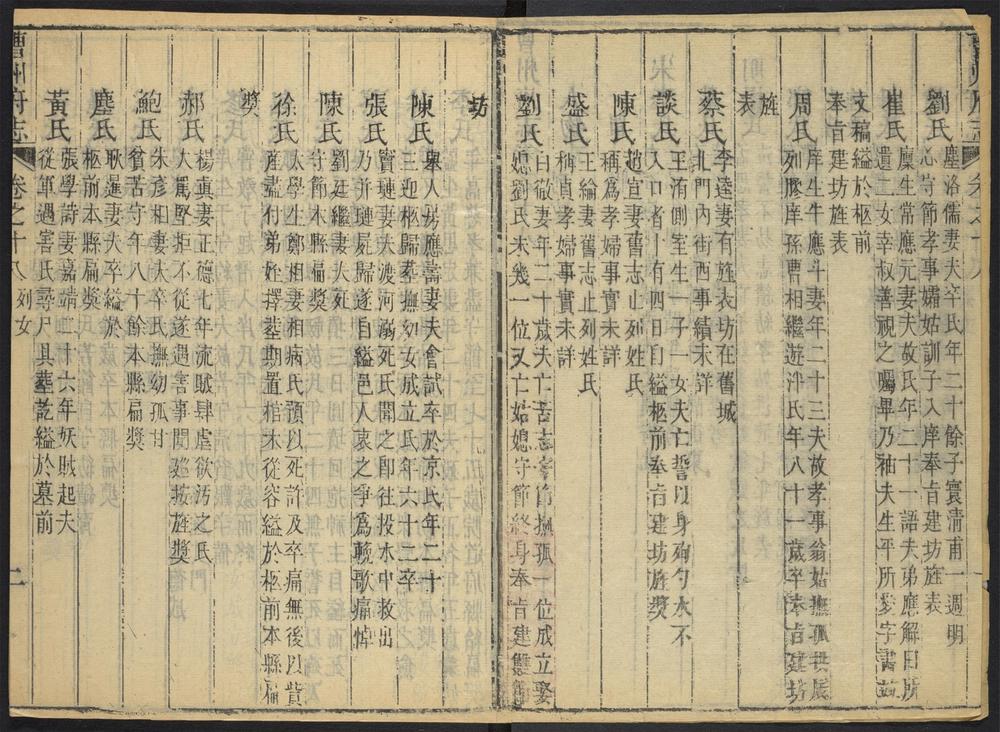 劉氏
塵洛儒妻夫卒氏年二十餘子寰清甫一週明
心守節孝事孀姑訓子入庠奉旨建坊旌表
崔氏
廩生常應元妻夫故氏年二十一語夫弟應解曰所
遺二女幸叔善視之囑畢乃袖夫生平所愛字書
文稿縊於柩前
奉旨建坊旌表
周氏
庠生牛應斗妻年二十三夫故孝事翁姑撫孤
列膠庠孫曹相繼遊泮氏年八十一歲卒奉旨建坊
旌
表
蔡氏
李逵妻有旌表坊在舊城
北門內街西事績未詳
談氏
王洧側室生一子一女夫亡誓以身殉勺水不
入口者十有四日自縊柩前奉旨建坊旌獎
陳氏
趙宜妻舊志止列姓氏
稱爲孝婦事實未詳
盛氏
王綸妻舊志止列姓氏
稱貞孝婦事實未詳
劉氏
白徵妻年二十歲夫亡苦志守節撫孤一位成立娶
媳劉氏未幾一位又亡姑媳守節終身奉旨建雙節
坊
陳氏
舉人房應壽妻夫會試卒於京氏年二十
三迎柩歸葬撫幼女成立氏年六十二卒
張氏
竇璉妻夫渡河溺死氏聞之卽往投水中救出
乃并璉屍歸遂自縊邑人哀之爭爲輓歌痛悼
陳氏
劉廷繼妻夫死
守節本縣匾獎
徐氏
太學生鄭相妻相病氏預以死許及卒痛無後以貲
產盡付弟姪擇葬期置棺木從容縊於柩前本縣匾
獎
郝氏
楊眞妻正德七年流賊肆虐欲污之氏
大罵堅拒不從遂遇害事聞巡按旌獎
鮑氏
朱彥相妻夫卒氏撫幼孤甘
貧苦守年八十餘本縣匾獎
塵氏
耿暹妻夫卒縊於
柩前本縣匾獎
黃氏
張學詩妻嘉靖二十六年妖賊起夫
從軍遇害氏尋尸具葬訖縊於墓前
曹州府志
卷之十八列女
二